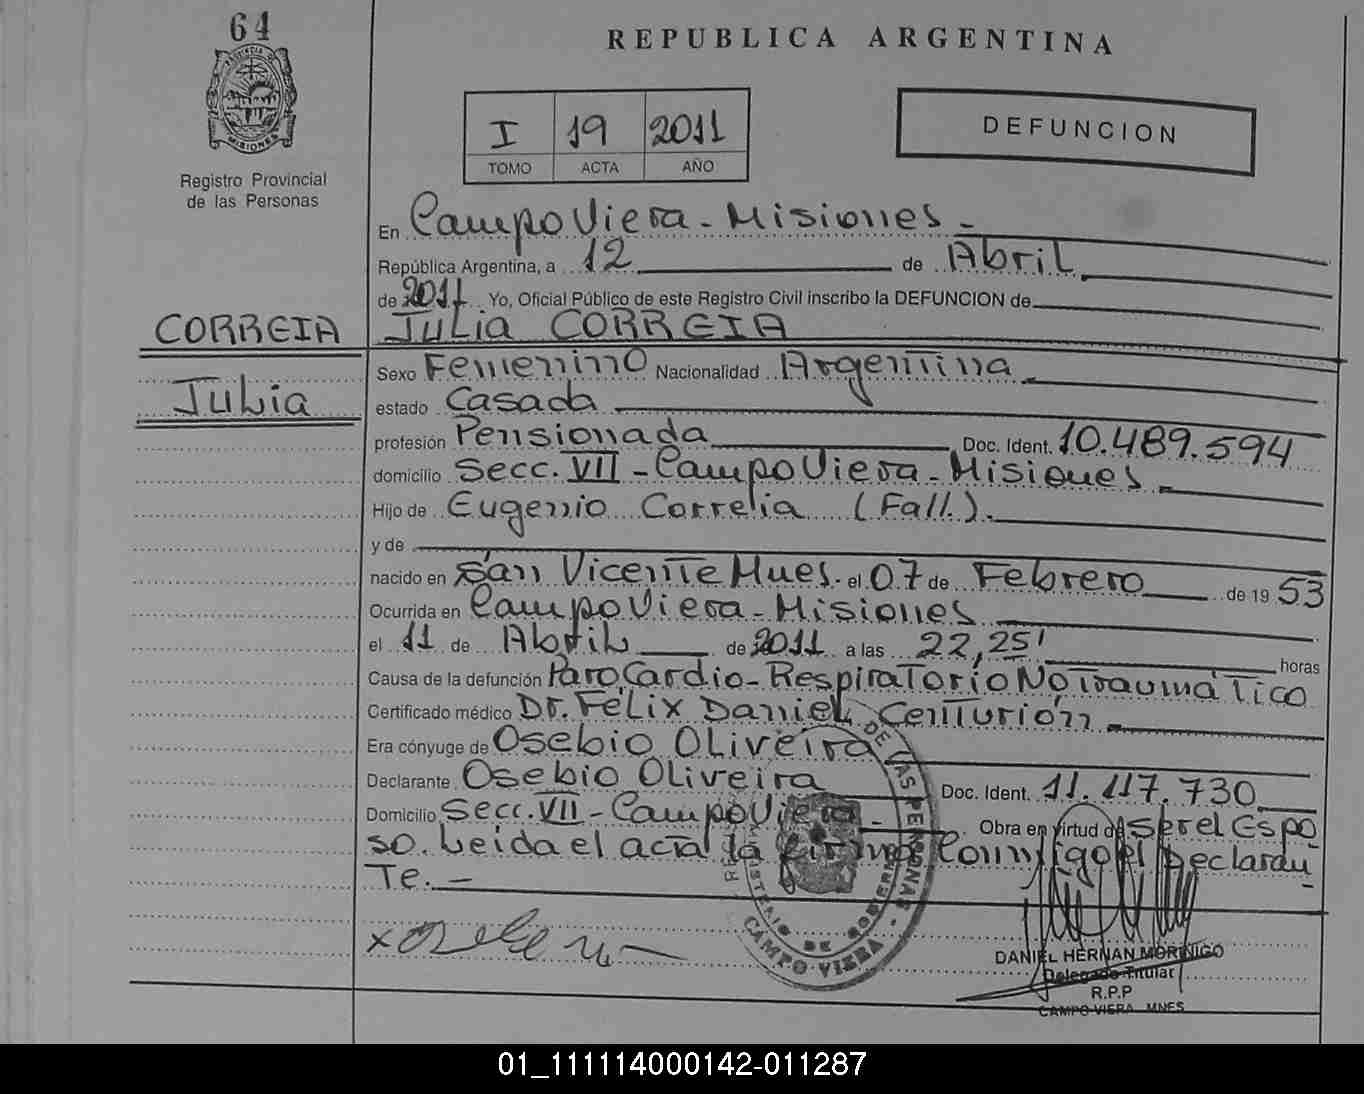 64
REPUBLICA ARGENTINA
MISIONES
Registro Provincial
de las Personas
I 19 2011
TOMO ACTA AÑO
DEFUNCION
En Campo Viera - Misiones -
República Argentina, a 12 de Abril
de 2011 Yo, Oficial Público de este Registro Civil inscribo la DEFUNCION de
CORREIA
Julia CORREIA
Sexo Femenino Nacionalidad Argentina
Julia
estado Casada
profesión Pensionada Doc. Ident. 10.489.594
domicilio Secc. VII - Campo Viera - Misiones -
Hijo de Eugenio Correia (Fall.).
y de
nacido en San Vicente Mnes. el 07 de Febrero de 1953
Ocurrida en Campo Viera - Misiones
el 11 de Abril de 2011 a las 22,25' horas
Causa de la defunción Paro Cardio - Respiratorio No Traumático
Certificado médico Dr. Félix Daniel Centurión
Era cónyuge de Osebio Oliveira
Declarante Osebio Oliveira Doc. Ident. 11.117.730
Domicilio Secc. VII - Campo Viera - Obra en virtud de ser el Espo
so. Leida el acta la firma conmigo el Declaran
Te. -
DE LAS PERSONAS
MINISTERIO DE GOBIERNO
CAMPO VIERA
DANIEL HERNAN MORINIGO
Delegado Titular
R.P.P
CAMPO VIERA MNES
01_111114000142-011287